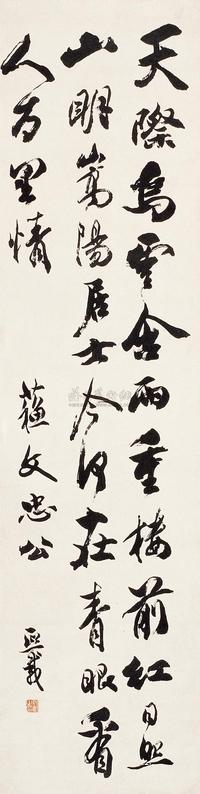 天際烏雲含雨重樓前紅日照
山明嵩陽居士今何在青眼看
人百里情
蘇文忠公
熙載